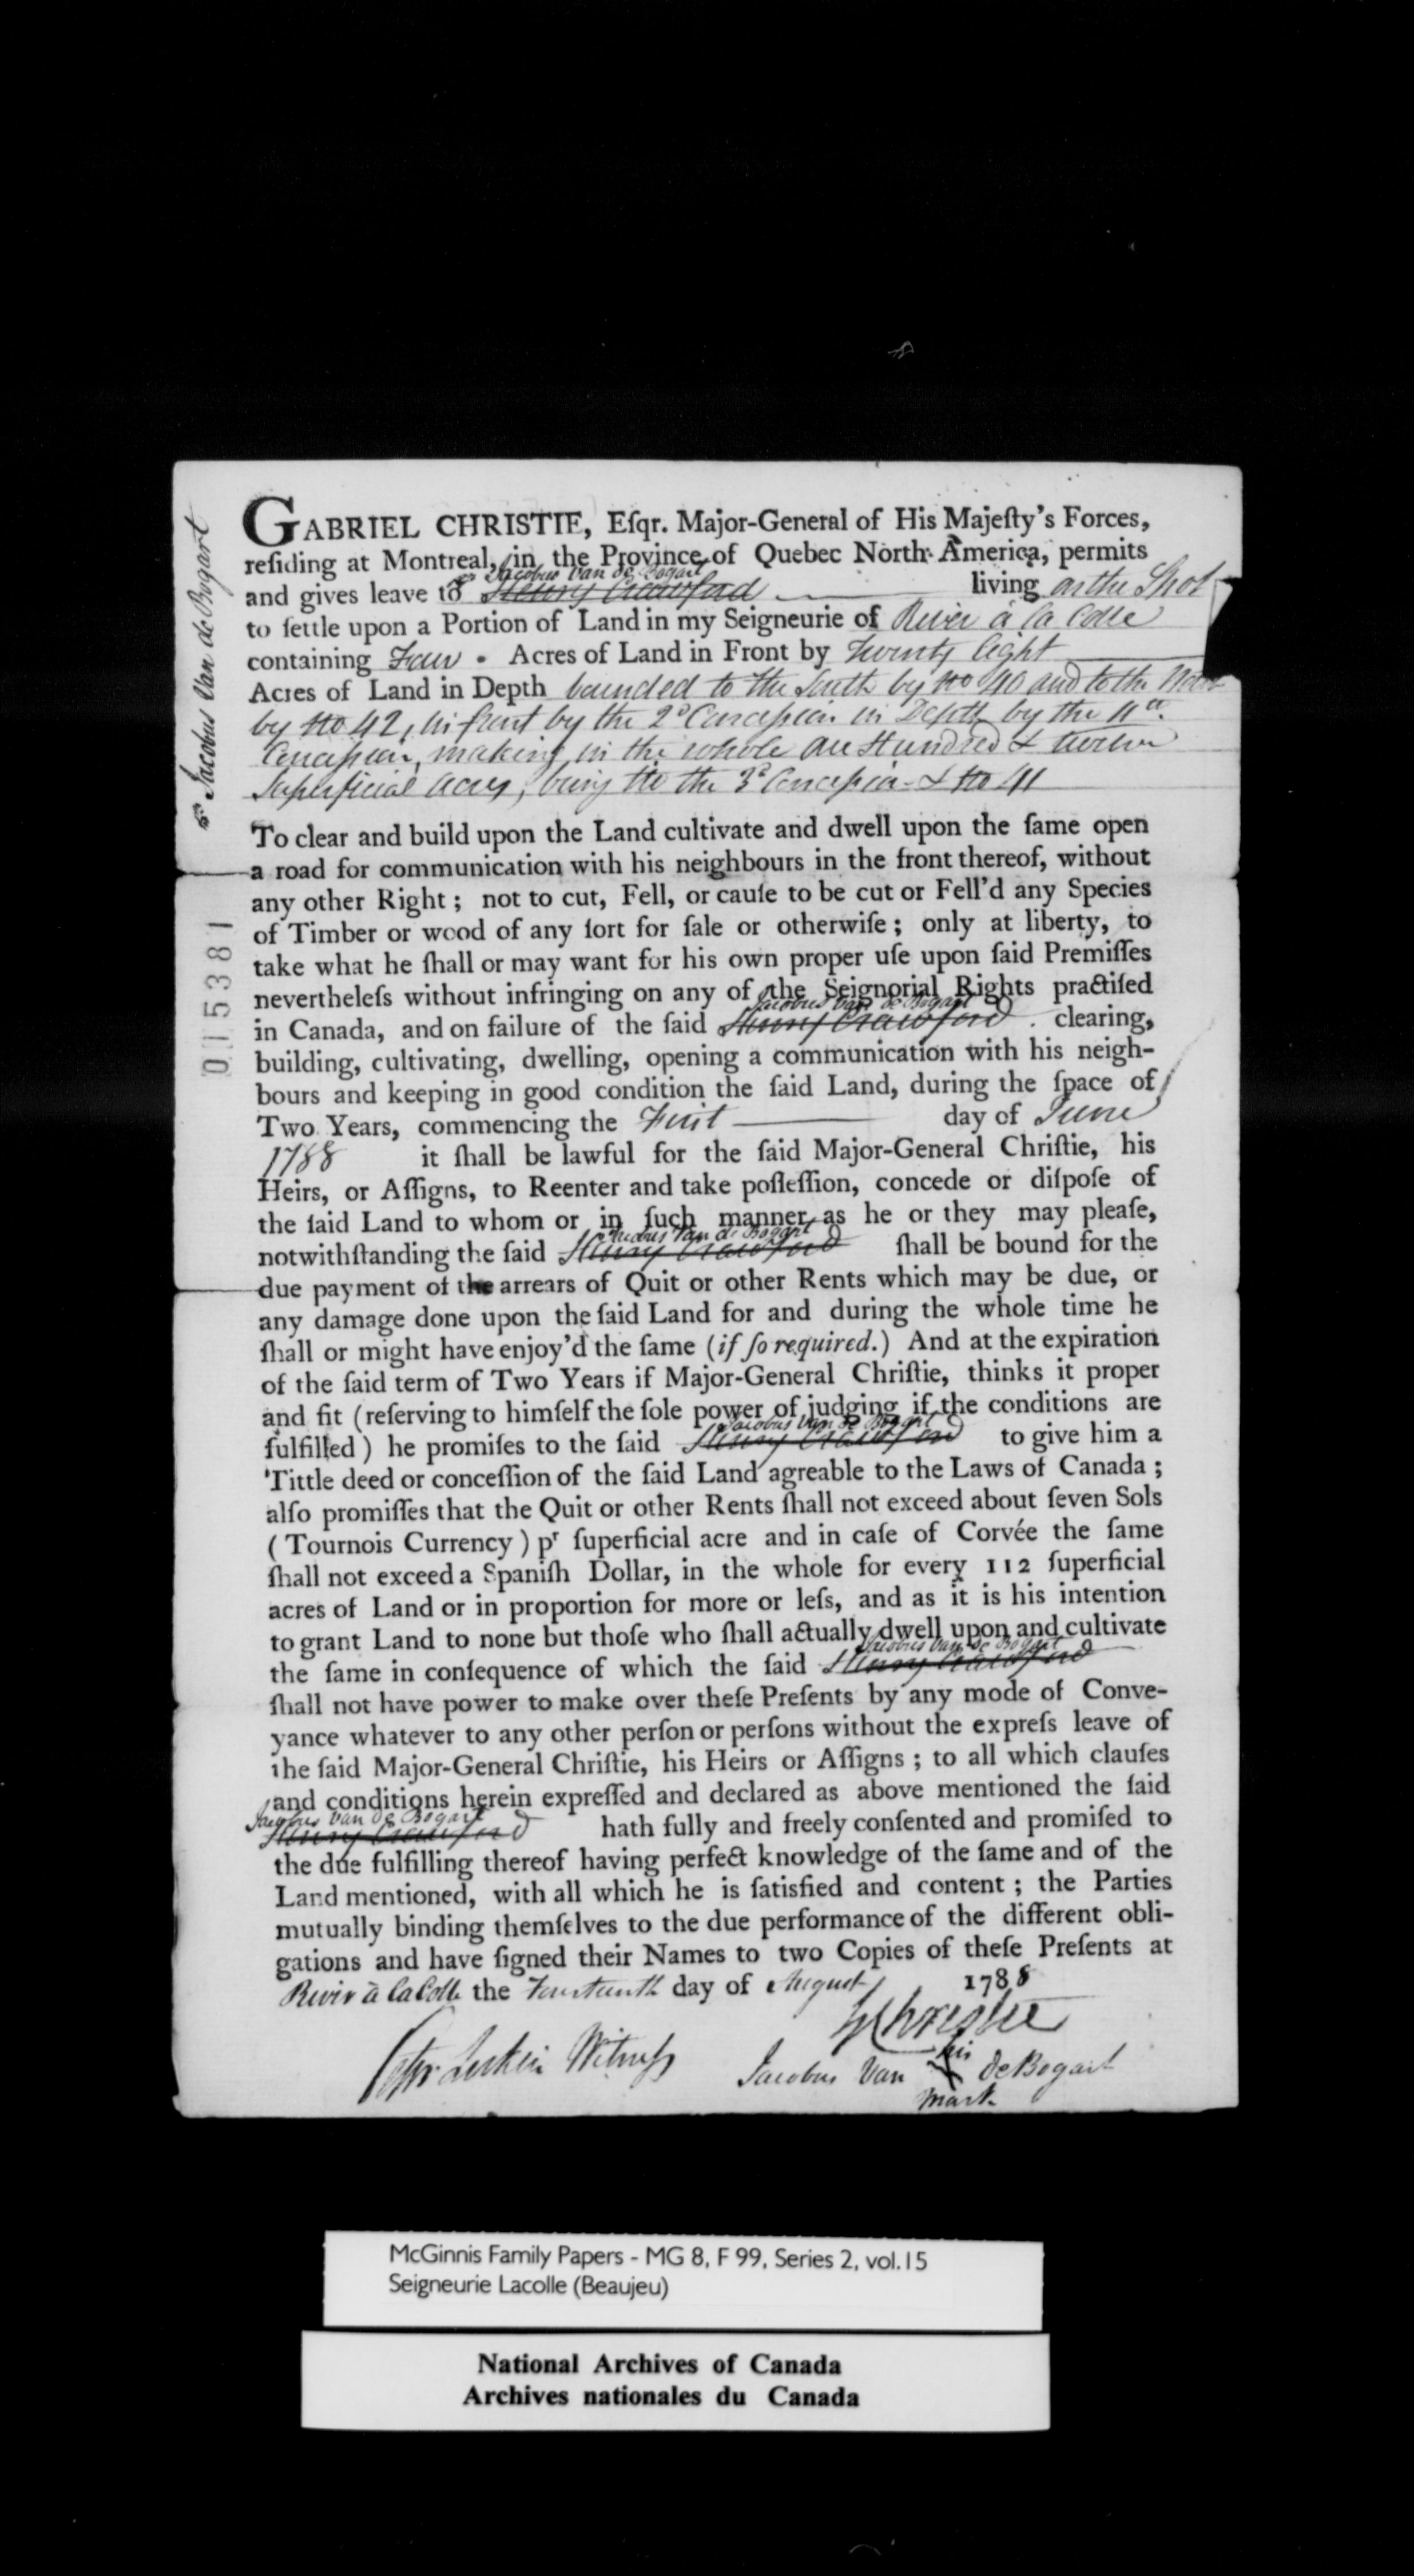 Jacobus Van de Bogart
015381
GABRIEL CHRISTIE, Eſqr. Major-General of His Majeſty's Forces,
reſiding at Montreal, in the Province of Quebec North America, permits
Jacobus Van de Bogart
and gives leave to Henry Crawford living on the Spot
to ſettle upon a Portion of Land in my Seigneurie of River à la Colle
containing Four Acres of Land in Front by Twenty Eight
Acres of Land in Depth bounded to the South by No 40 and to the North
by No 42, in front by the 2d Concession in Depth by the 4th
Concession, making in the whole One Hundred & twelve
Superficial Acres, being the 3d Concession & No 41
To clear and build upon the Land cultivate and dwell upon the ſame open
a road for communication with his neighbours in the front thereof, without
any other Right; not to cut, Fell, or cauſe to be cut or Fell'd any Species
of Timber or wood of any ſort for ſale or otherwiſe; only at liberty, to
take what he ſhall or may want for his own proper uſe upon ſaid Premiſſes
nevertheleſs without infringing on any of the Seignorial Rights practiſed
Jacobus Van de Bogart
in Canada, and on failure of the ſaid Henry Crawford clearing,
building, cultivating, dwelling, opening a communication with his neigh-
bours and keeping in good condition the ſaid Land, during the ſpace of
Two Years, commencing the First day of June
1788 it ſhall be lawful for the ſaid Major-General Chriſtie, his
Heirs, or Aſſigns, to Reenter and take poſſeſſion, concede or diſpoſe of
the ſaid Land to whom or in ſuch manner as he or they may pleaſe,
Jacobus Van de Bogart
notwithſtanding the ſaid Henry Crawford ſhall be bound for the
due payment of the arrears of Quit or other Rents which may be due, or
any damage done upon the ſaid Land for and during the whole time he
ſhall or might have enjoy'd the ſame (if ſo required.) And at the expiration
of the ſaid term of Two Years if Major-General Chriſtie, thinks it proper
and fit (reſerving to himſelf the ſole power of judging if the conditions are
Jacobus Van de Bogart
fulfilled) he promiſes to the ſaid Henry Crawford to give him a
Tittle deed or conceſſion of the ſaid Land agreable to the Laws of Canada;
alſo promiſſes that the Quit or other Rents ſhall not exceed about ſeven Sols
(Tournois Currency) pr ſuperficial acre and in caſe of Corvée the ſame
ſhall not exceed a Spaniſh Dollar, in the whole for every 112 ſuperficial
acres of Land or in proportion for more or leſs, and as it is his intention
to grant Land to none but thoſe who ſhall actually dwell upon and cultivate
Jacobus Van de Bogart
the ſame in conſequence of which the ſaid Henry Crawford
ſhall not have power to make over theſe Preſents by any mode of Conve-
yance whatever to any other perſon or perſons without the expreſs leave of
the ſaid Major-General Chriſtie, his Heirs or Aſſigns; to all which clauſes
and conditions herein expreſſed and declared as above mentioned the ſaid
Jacobus Van de Bogart
Henry Crawford hath fully and freely conſented and promiſed to
the due fulfilling thereof having perfect knowledge of the ſame and of the
Land mentioned, with all which he is ſatisfied and content; the Parties
mutually binding themſelves to the due performance of the different obli-
gations and have ſigned their Names to two Copies of theſe Preſents at
River à la Colle the Fourteenth day of August 1788
G Christie
Witness
his
Jacobus Van X de Bogart
mark
McGinnis Family Papers - MG 8, F 99, Series 2, vol.15
Seigneurie Lacolle (Beaujeu)
National Archives of Canada
Archives nationales du Canada